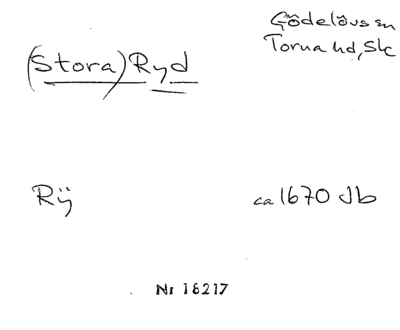 Gödelövs sn
Torna hd, Sk
(Stora) Ryd
Rÿ
ca 1670 Jb
Nr 18217